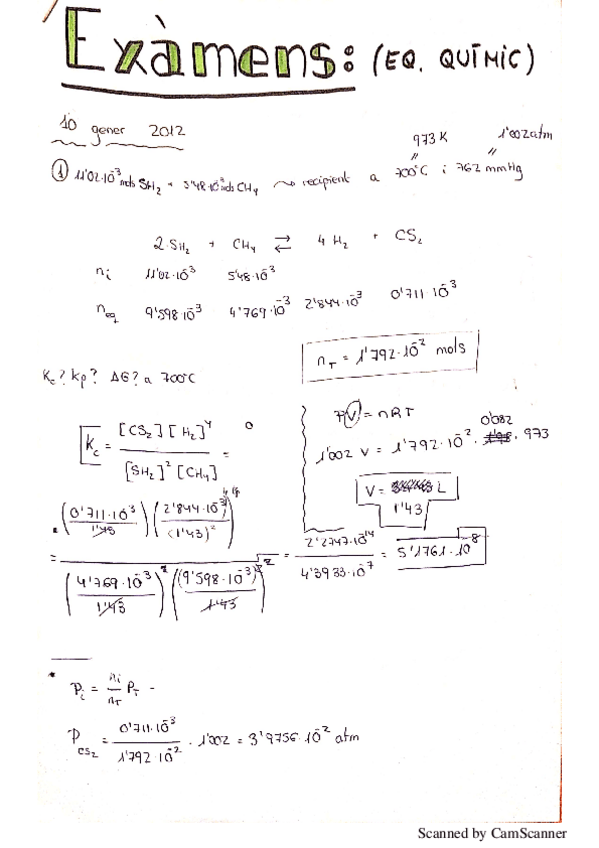 Exàmens: (EQ. QUÍMIC)
10 gener 2012
973 K 1'002 atm
① 11'02·10⁻³ mols SH₂ + 5'48·10⁻³ mols CH₄ ⟿ recipient a 700ºC i 762 mmHg
2 SH₂ + CH₄ ⇄ 4 H₂ + CS₂
nᵢ 11'02·10⁻³ 5'48·10⁻³
n_eq 9'598·10⁻³ 4'769·10⁻³ 2'844·10⁻³ 0'711·10⁻³
n_T = 1'792·10⁻² mols
Kc? Kp? ΔG? a 700ºC
PV = nRT
0'082
1'002 V = 1'792·10⁻² · 973
V = L
1'43
Kc = [CS₂][H₂]⁴ / [SH₂]²[CH₄] =
= (0'711·10⁻³ / 1'43)((2'844·10⁻³)⁴ / (1'43)²) / (4'769·10⁻³ / 1'43)((9'598·10⁻³)² / 1'43) = 2'2747·10⁻¹⁴ / 4'3933·10⁻⁷ = 5'1761·10⁻⁸
* Pᵢ = nᵢ/n_T P_T -
P_CS₂ = 0'711·10⁻³ / 1'792·10⁻² · 1'002 = 3'9756·10⁻² atm
Scanned by CamScanner